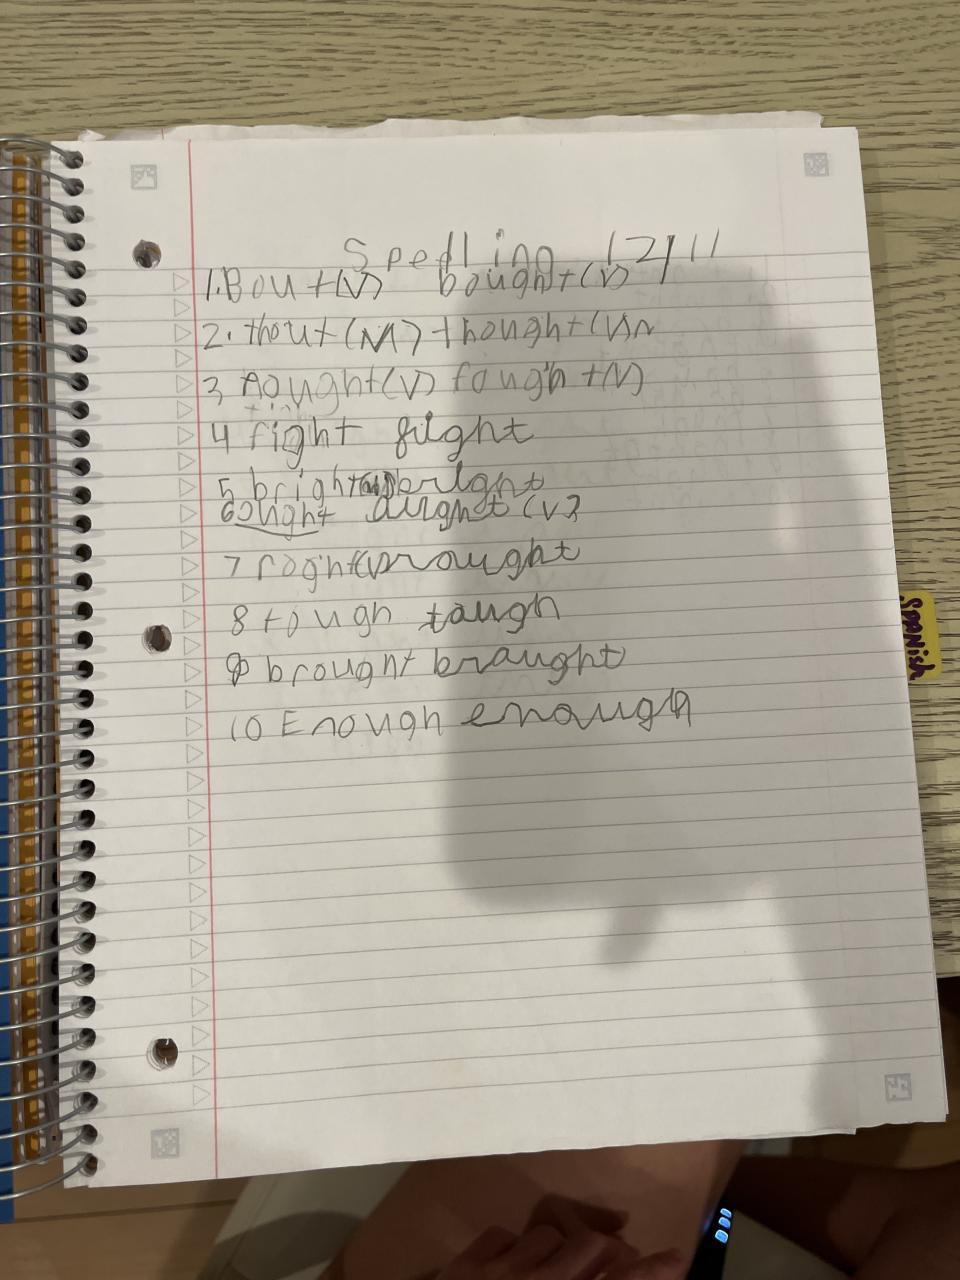 Spelling 12/11
1. Bout (V) bought (V)
2. thout (N) thought (V)n
3 nought (V) fough t (V)
4 right
5 bright
6 ought (V)
7 roght (V) rought
8 tough tough
9 brought brought
10 Enough enough
Spanish